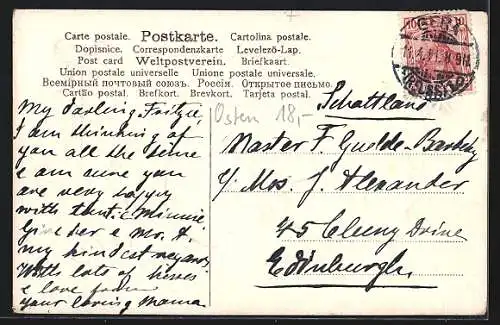 Carte postale. Postkarte. Cartolina postale.
Dopisnice. Correspondenzkarte Levelező-Lap.
Post card Weltpostverein. Briefkaart.
Union postale universelle Unione postale universale.
Всемірный почтовый союзъ. Россія. Открытое письмо.
Cartão postal. Brefkort. Brevkort. Tarjeta postal.
10 10
GERA
(REUSS)
Osten 18,-
My darling
I am thinking of
you all the time
& am sure you
are very happy
with Aunt Minnie
Give her & Mr. A.
my kindest regards
With lots of kisses
& love from
your loving Mama
Schottland
Master F. Guedde-
c/o Mrs. J. Alexander
45 Cluny Drive
Edinburgh